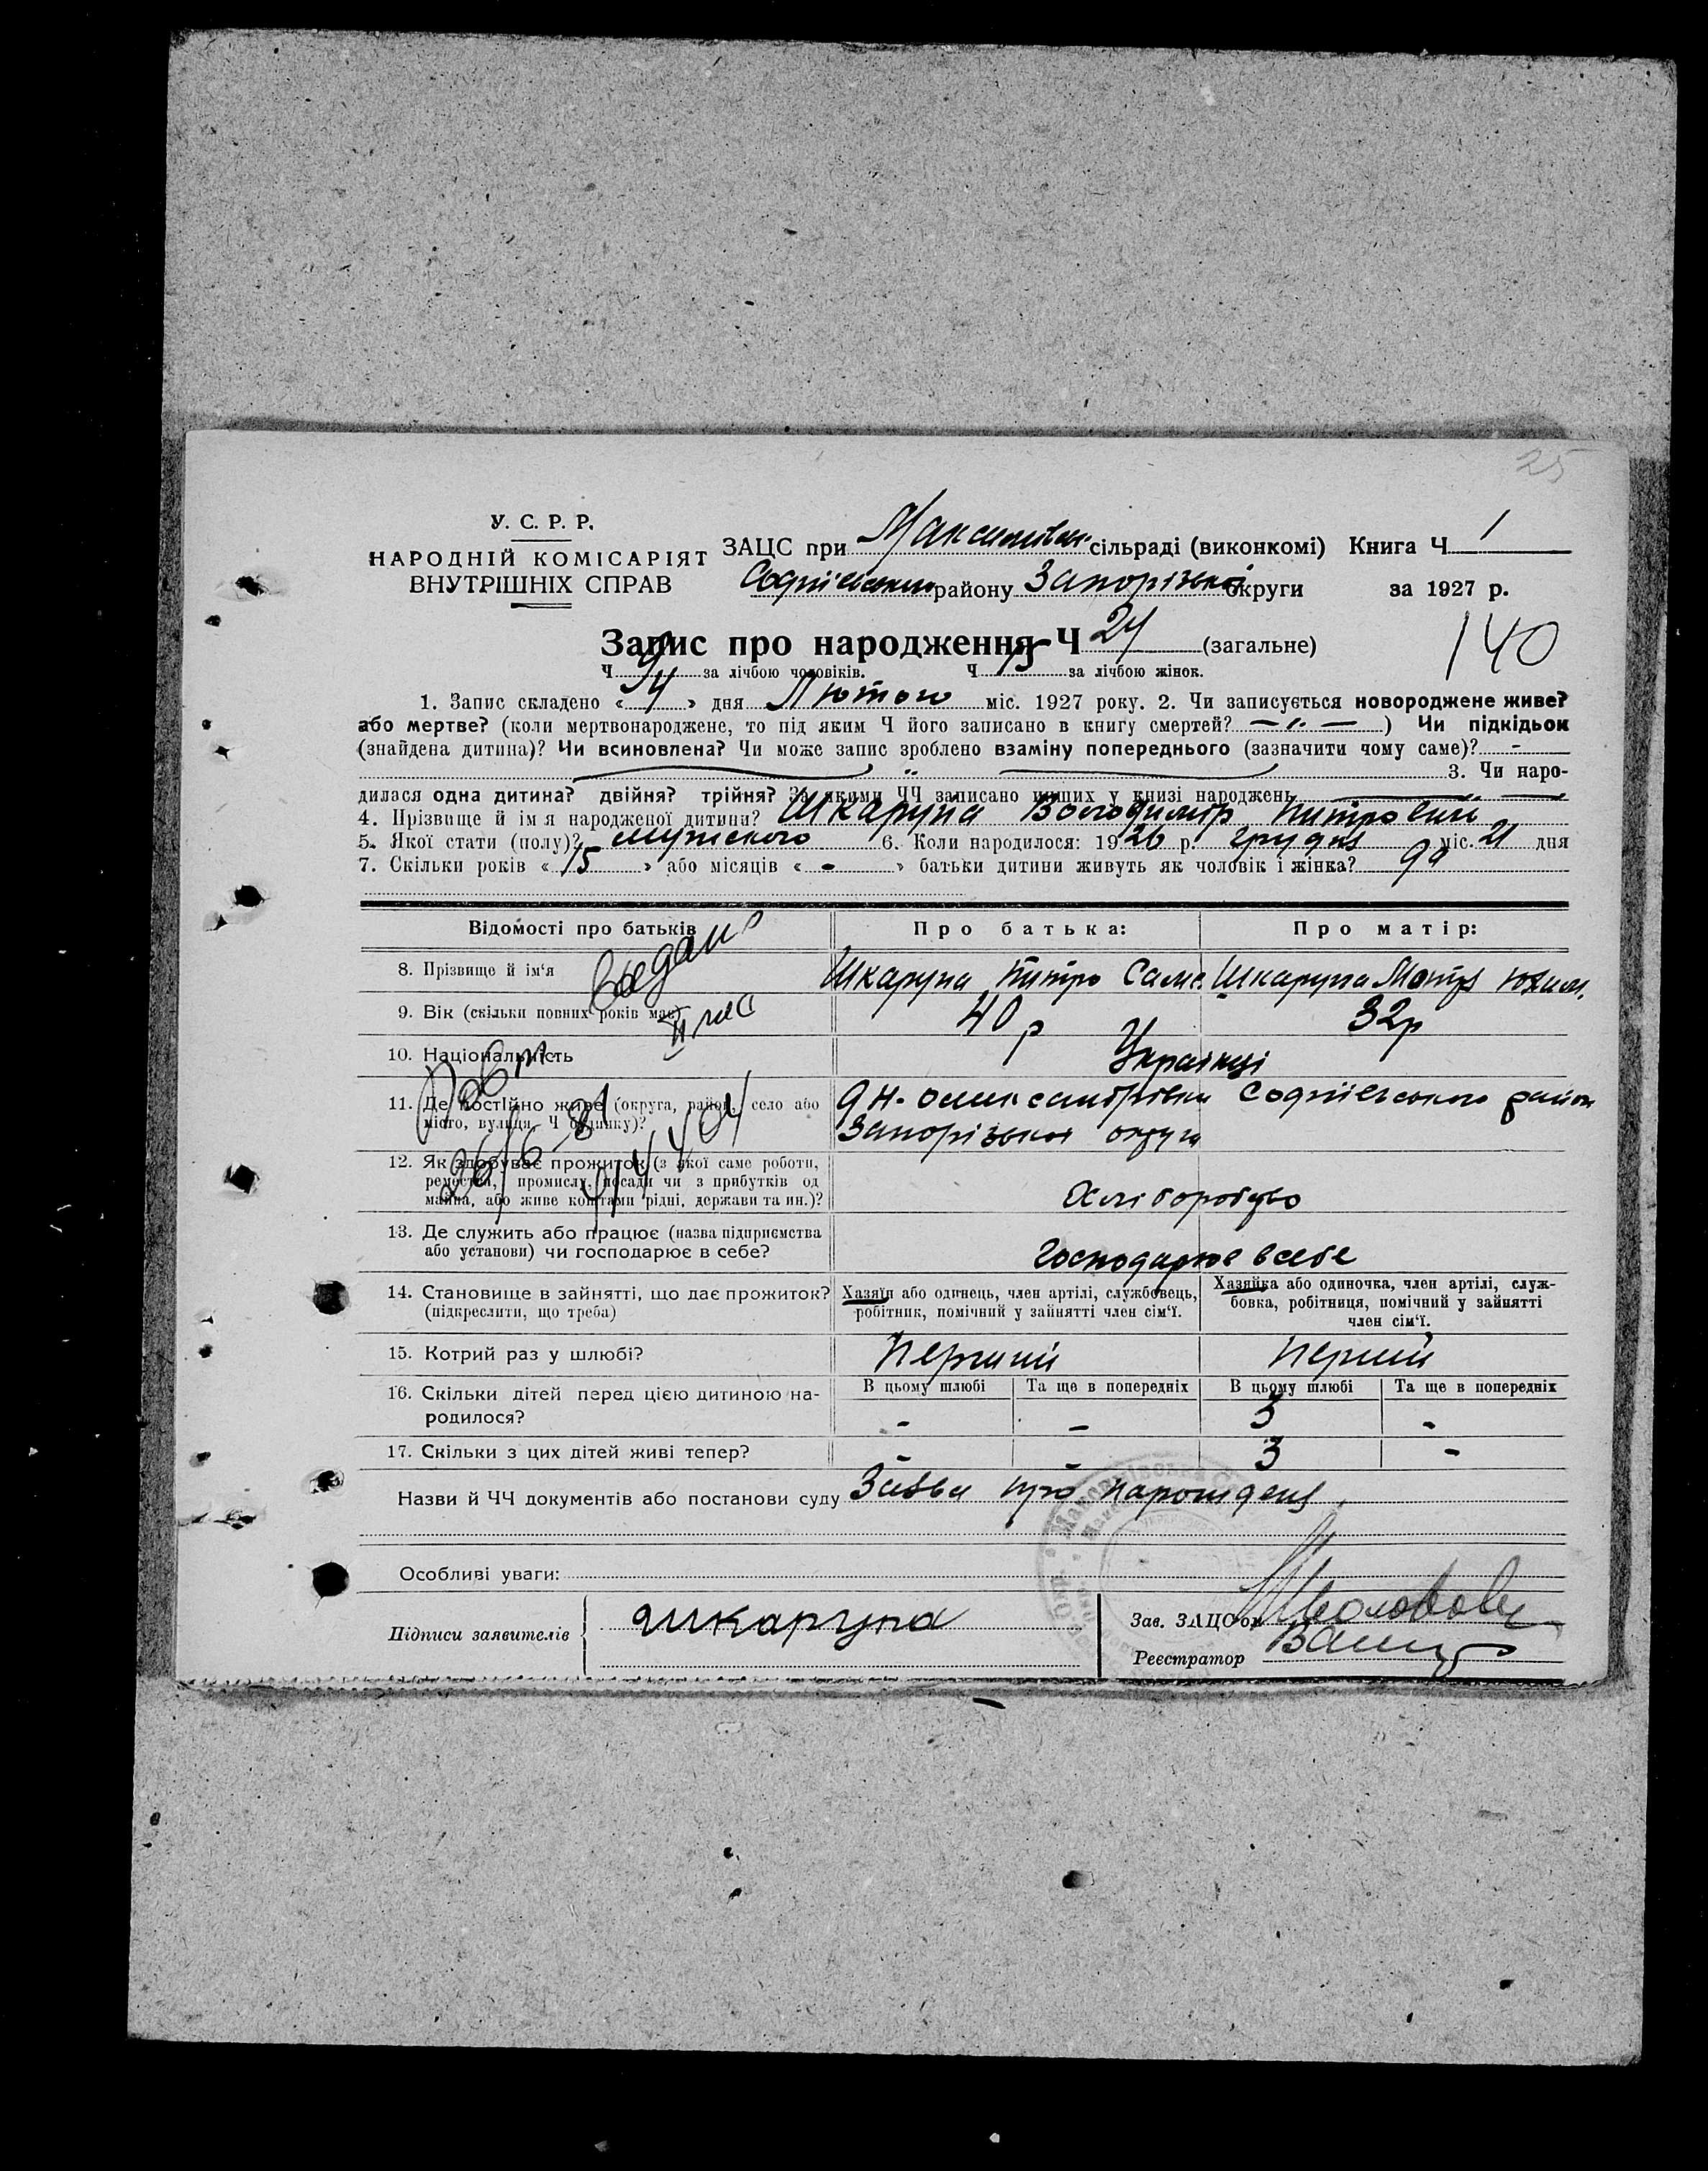 25
У. С. Р. Р.
НАРОДНІЙ КОМІСАРІЯТ
ВНУТРІШНІХ СПРАВ
ЗАЦС при сільраді (виконкомі) Книга Ч 1
району Запорізької округи за 1927 р.
Запис про народження Ч 24 (загальне)
140
Ч 9 за лічбою чоловіків. Ч 15 за лічбою жінок.
1. Запис складено « 4 » дня Лютого міс. 1927 року. 2. Чи записується новороджене живе?
або мертве? (коли мертвонароджене, то під яким Ч його записано в книгу смертей? ) Чи підкідьок
(знайдена дитина)? Чи всиновлена? Чи може запис зроблено взаміну попереднього (зазначити чому саме)? -
3. Чи наро-
дилася одна дитина? двійня? трійня? За якими ЧЧ записано инших у книзі народжень
4. Прізвище й ім'я народженої дитини? Шкарупа Володимир Питрович
5. Якої стати (полу)? мужского 6. Коли народилося: 1926 р. грудня міс. 21 дня
7. Скільки років « 15 » або місяців « - » батьки дитини живуть як чоловік і жінка?
Відомості про батьків
Про батька:
Про матір:
8. Прізвище й ім'я Шкарупа Питро Сам. Шкарупа Мотря Юхим.
9. Вік (скільки повних років має) 40 р 32р
10. Національність Українці
11. Де постійно живе (округа, район, село або Софиївського район
місто, вулиця, Ч будинку)? Запорізької округи
12. Як здобуває прожиток (з якої саме роботи,
ремества, промислу, посади чи з прибутків од
майна, або живе коштами рідні, держави та ин.)? Хліборобство
13. Де служить або працює (назва підприємства
або установи) чи господарює в себе? Господарює в себе
14. Становище в зайнятті, що дає прожиток?
(підкреслити, що треба)
Хазяїн або одинець, член артілі, службовець,
робітник, помічний у зайнятті член сім'ї.
Хазяйка або одиночка, член артілі, служ-
бовка, робітниця, помічний у зайнятті
член сім'ї.
15. Котрий раз у шлюбі? Перший Перший
16. Скільки дітей перед цією дитиною на-
родилося?
В цьому шлюбі Та ще в попередніх В цьому шлюбі Та ще в попередніх
- - 3 -
17. Скільки з цих дітей живі тепер? - - 3 -
Назви й ЧЧ документів або постанови суду Заява про народженя
Особливі уваги:
Підписи заявителів Шкарупа
Зав. ЗАЦС'ом
Реєстратор